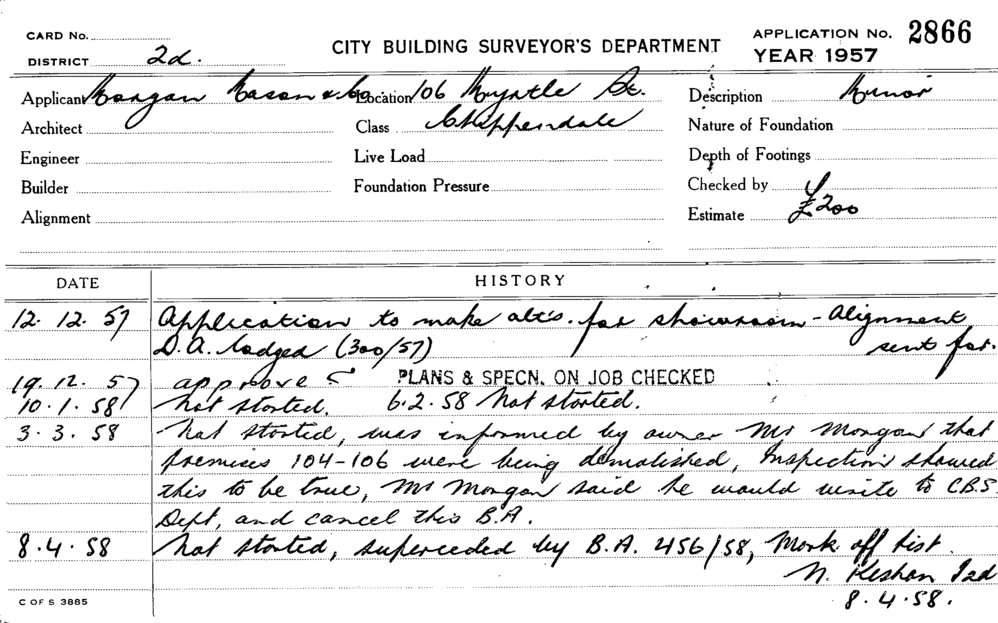 CARD No.
DISTRICT 2d.
CITY BUILDING SURVEYOR'S DEPARTMENT
APPLICATION No. 2866
YEAR 1957
Applicant Morgan Mason & Co. Location 106 Myrtle St. Description Minor
Architect Class Chippendale Nature of Foundation
Engineer Live Load Depth of Footings
Builder Foundation Pressure Checked by
Alignment Estimate £200
DATE HISTORY
12. 12. 57 Application to make alts. for showroom - Alignment
D.A. lodged (300/57) sent for.
19. 12. 57 approve PLANS & SPECN. ON JOB CHECKED
10. 1. 58 Not started. 6.2.58 Not started.
3. 3. 58 Not started, was informed by owner Mr Morgan that
premises 104-106 were being demolished, Inspection showed
this to be true, Mr Morgan said he would write to C.B.S.
Dept, and cancel this B.A.
8. 4. 58 Not started, superceded by B.A. 456/58, Mark off list.
N. Keshan I2d
8. 4. 58.
C OF S 3885